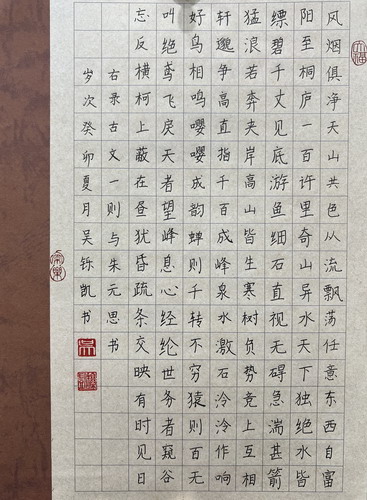 风烟俱净天山共色从流飘荡任意东西自富
阳至桐庐一百许里奇山异水天下独绝水皆
缥碧千丈见底游鱼细石直视无碍急湍甚箭
猛浪若奔夹岸高山皆生寒树负势竞上互相
轩邈争高直指千百成峰泉水激石泠泠作响
好鸟相鸣嘤嘤成韵蝉则千转不穷猿则百无
叫绝鸢飞戾天者望峰息心经纶世务者窥谷
忘反横柯上蔽在昼犹昏疏条交映有时见日
右录古文一则与朱元思书
岁次癸卯夏月吴铄凯书